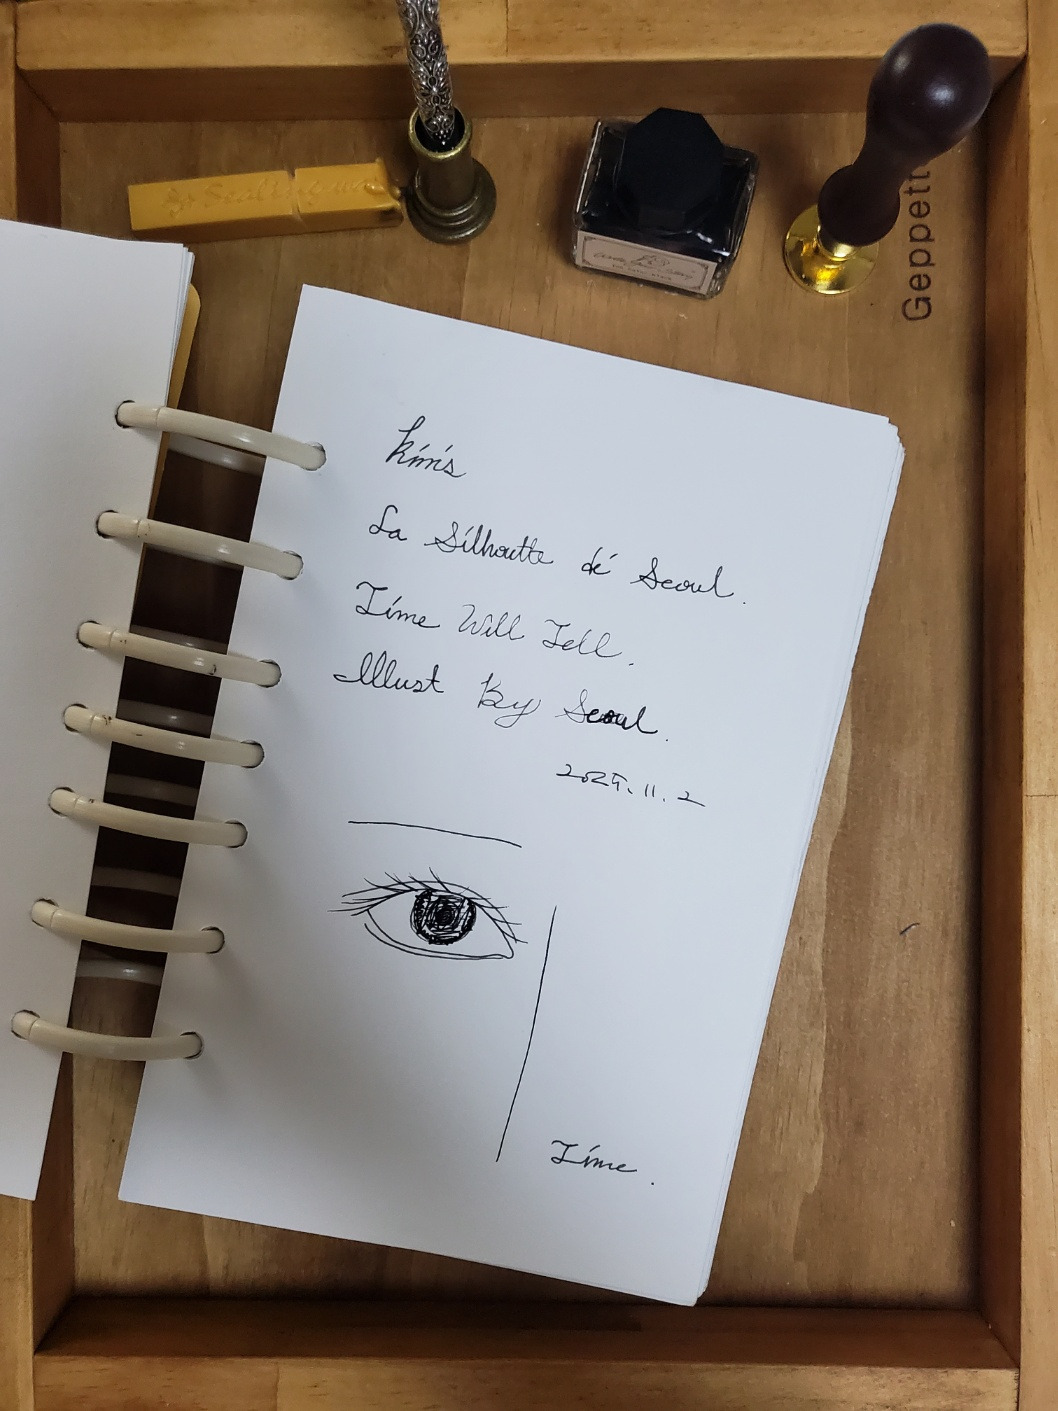 Geppett
Kim's
La Silhoutte dé Seoul.
Time Will Tell.
Illust By Seoul.
2025.11.2
Time.